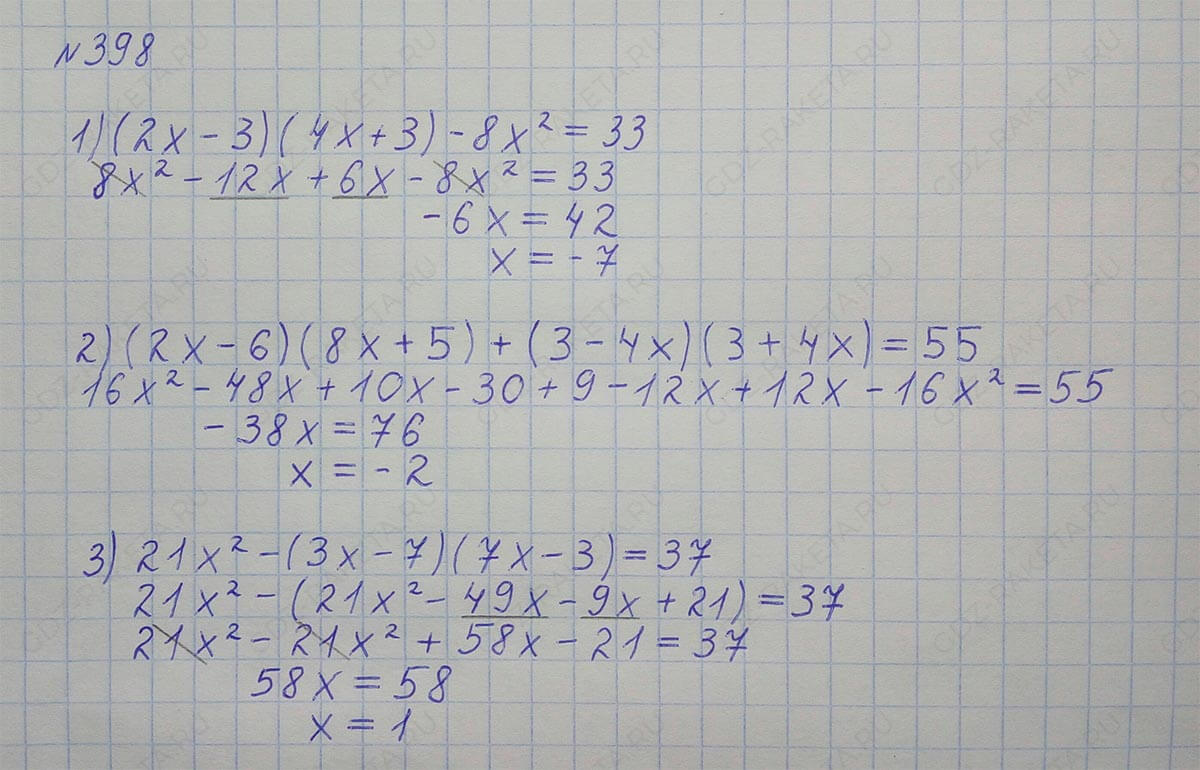 №398
1) (2x - 3)(4x + 3) - 8x² = 33
8x² - 12x + 6x - 8x² = 33
-6x = 42
x = -7
2) (2x - 6)(8x + 5) + (3 - 4x)(3 + 4x) = 55
16x² - 48x + 10x - 30 + 9 - 12x + 12x - 16x² = 55
-38x = 76
x = -2
3) 21x² - (3x - 7)(7x - 3) = 37
21x² - (21x² - 49x - 9x + 21) = 37
21x² - 21x² + 58x - 21 = 37
58x = 58
x = 1
GDZ-RAKETA.RU